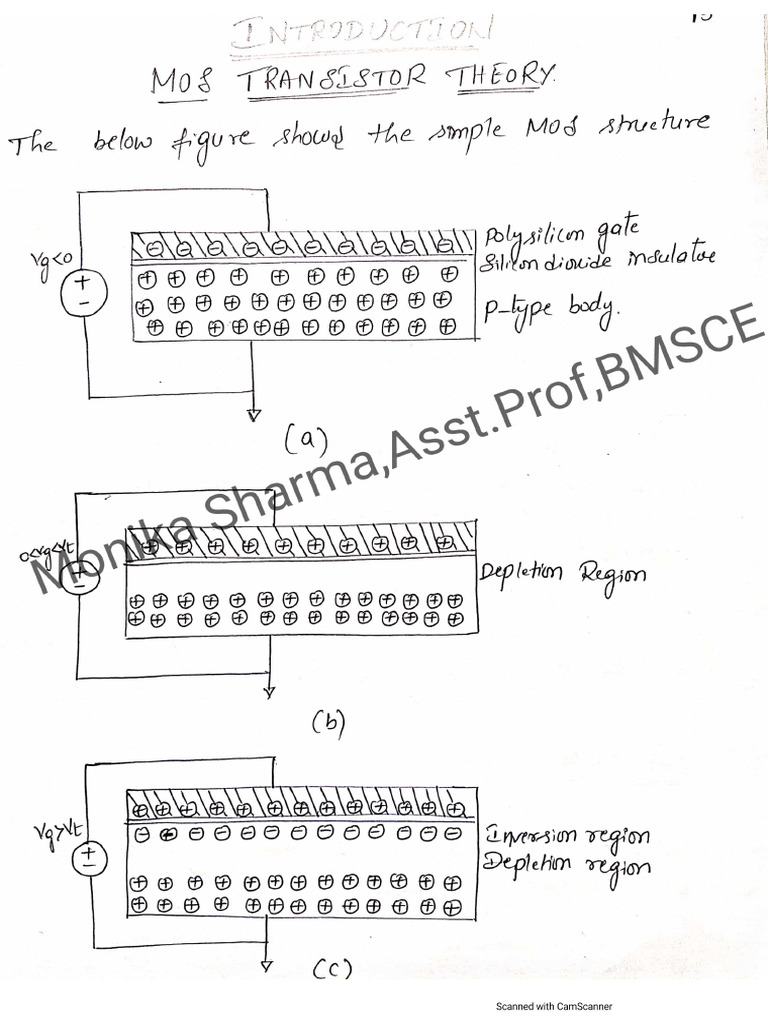 INTRODUCTION
MOS TRANSISTOR THEORY.
The below figure shows the simple MOS structure
Vg<0
+
-
Polysilicon gate
Silicon dioxide insulator
P-type body.
(a)
Monika Sharma,Asst.Prof,BMSCE
0<Vg<Vt
+
-
Depletion Region
(b)
Vg>Vt
+
-
Inversion region
Depletion region
(c)
Scanned with CamScanner